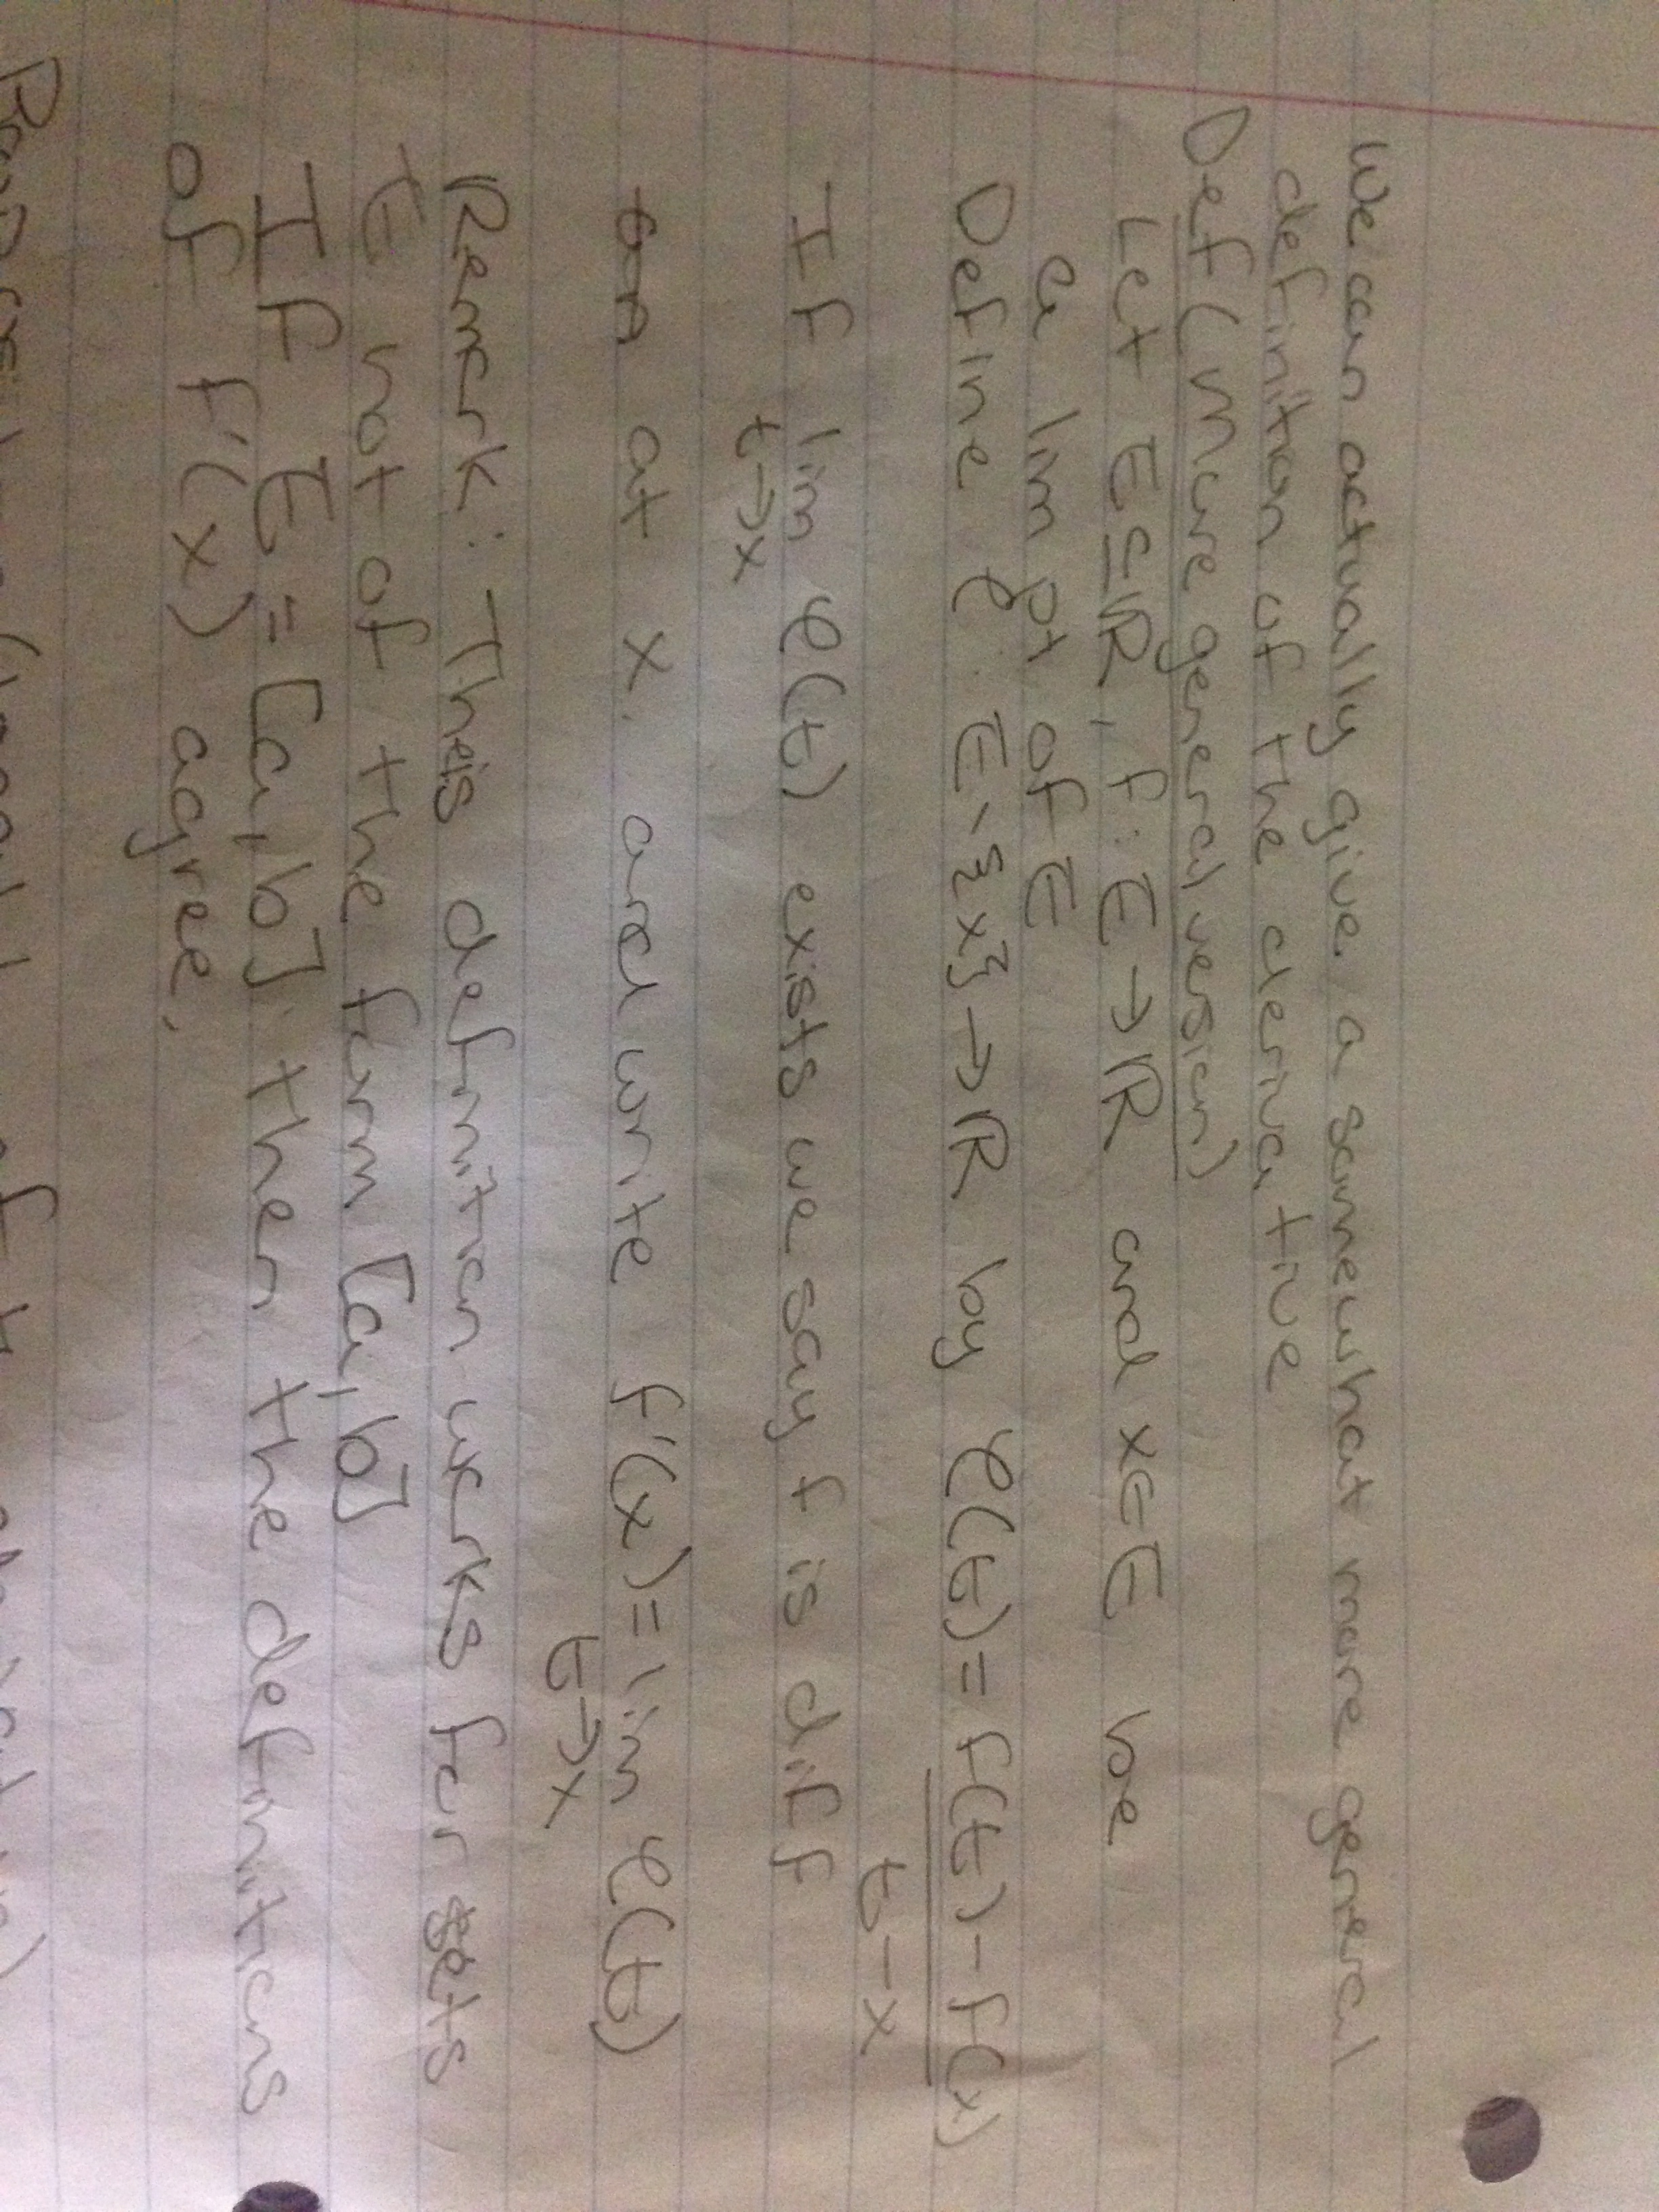 We can actually give a somewhat more general
definition of the derivative
Def (More general version)
Let E ⊆ ℝ, f: E → ℝ and x ∈ E be
a lim pt of E
Define φ: E \ {x} → ℝ by φ(t) = f(t) - f(x)
t - x
If lim φ(t) exists we say f is diff
t → x
at x and write f'(x) = lim φ(t)
t → x
Remark: This definition works for sets
E not of the form [a, b]
If E = [a, b] then the definitions
of f'(x) agree.